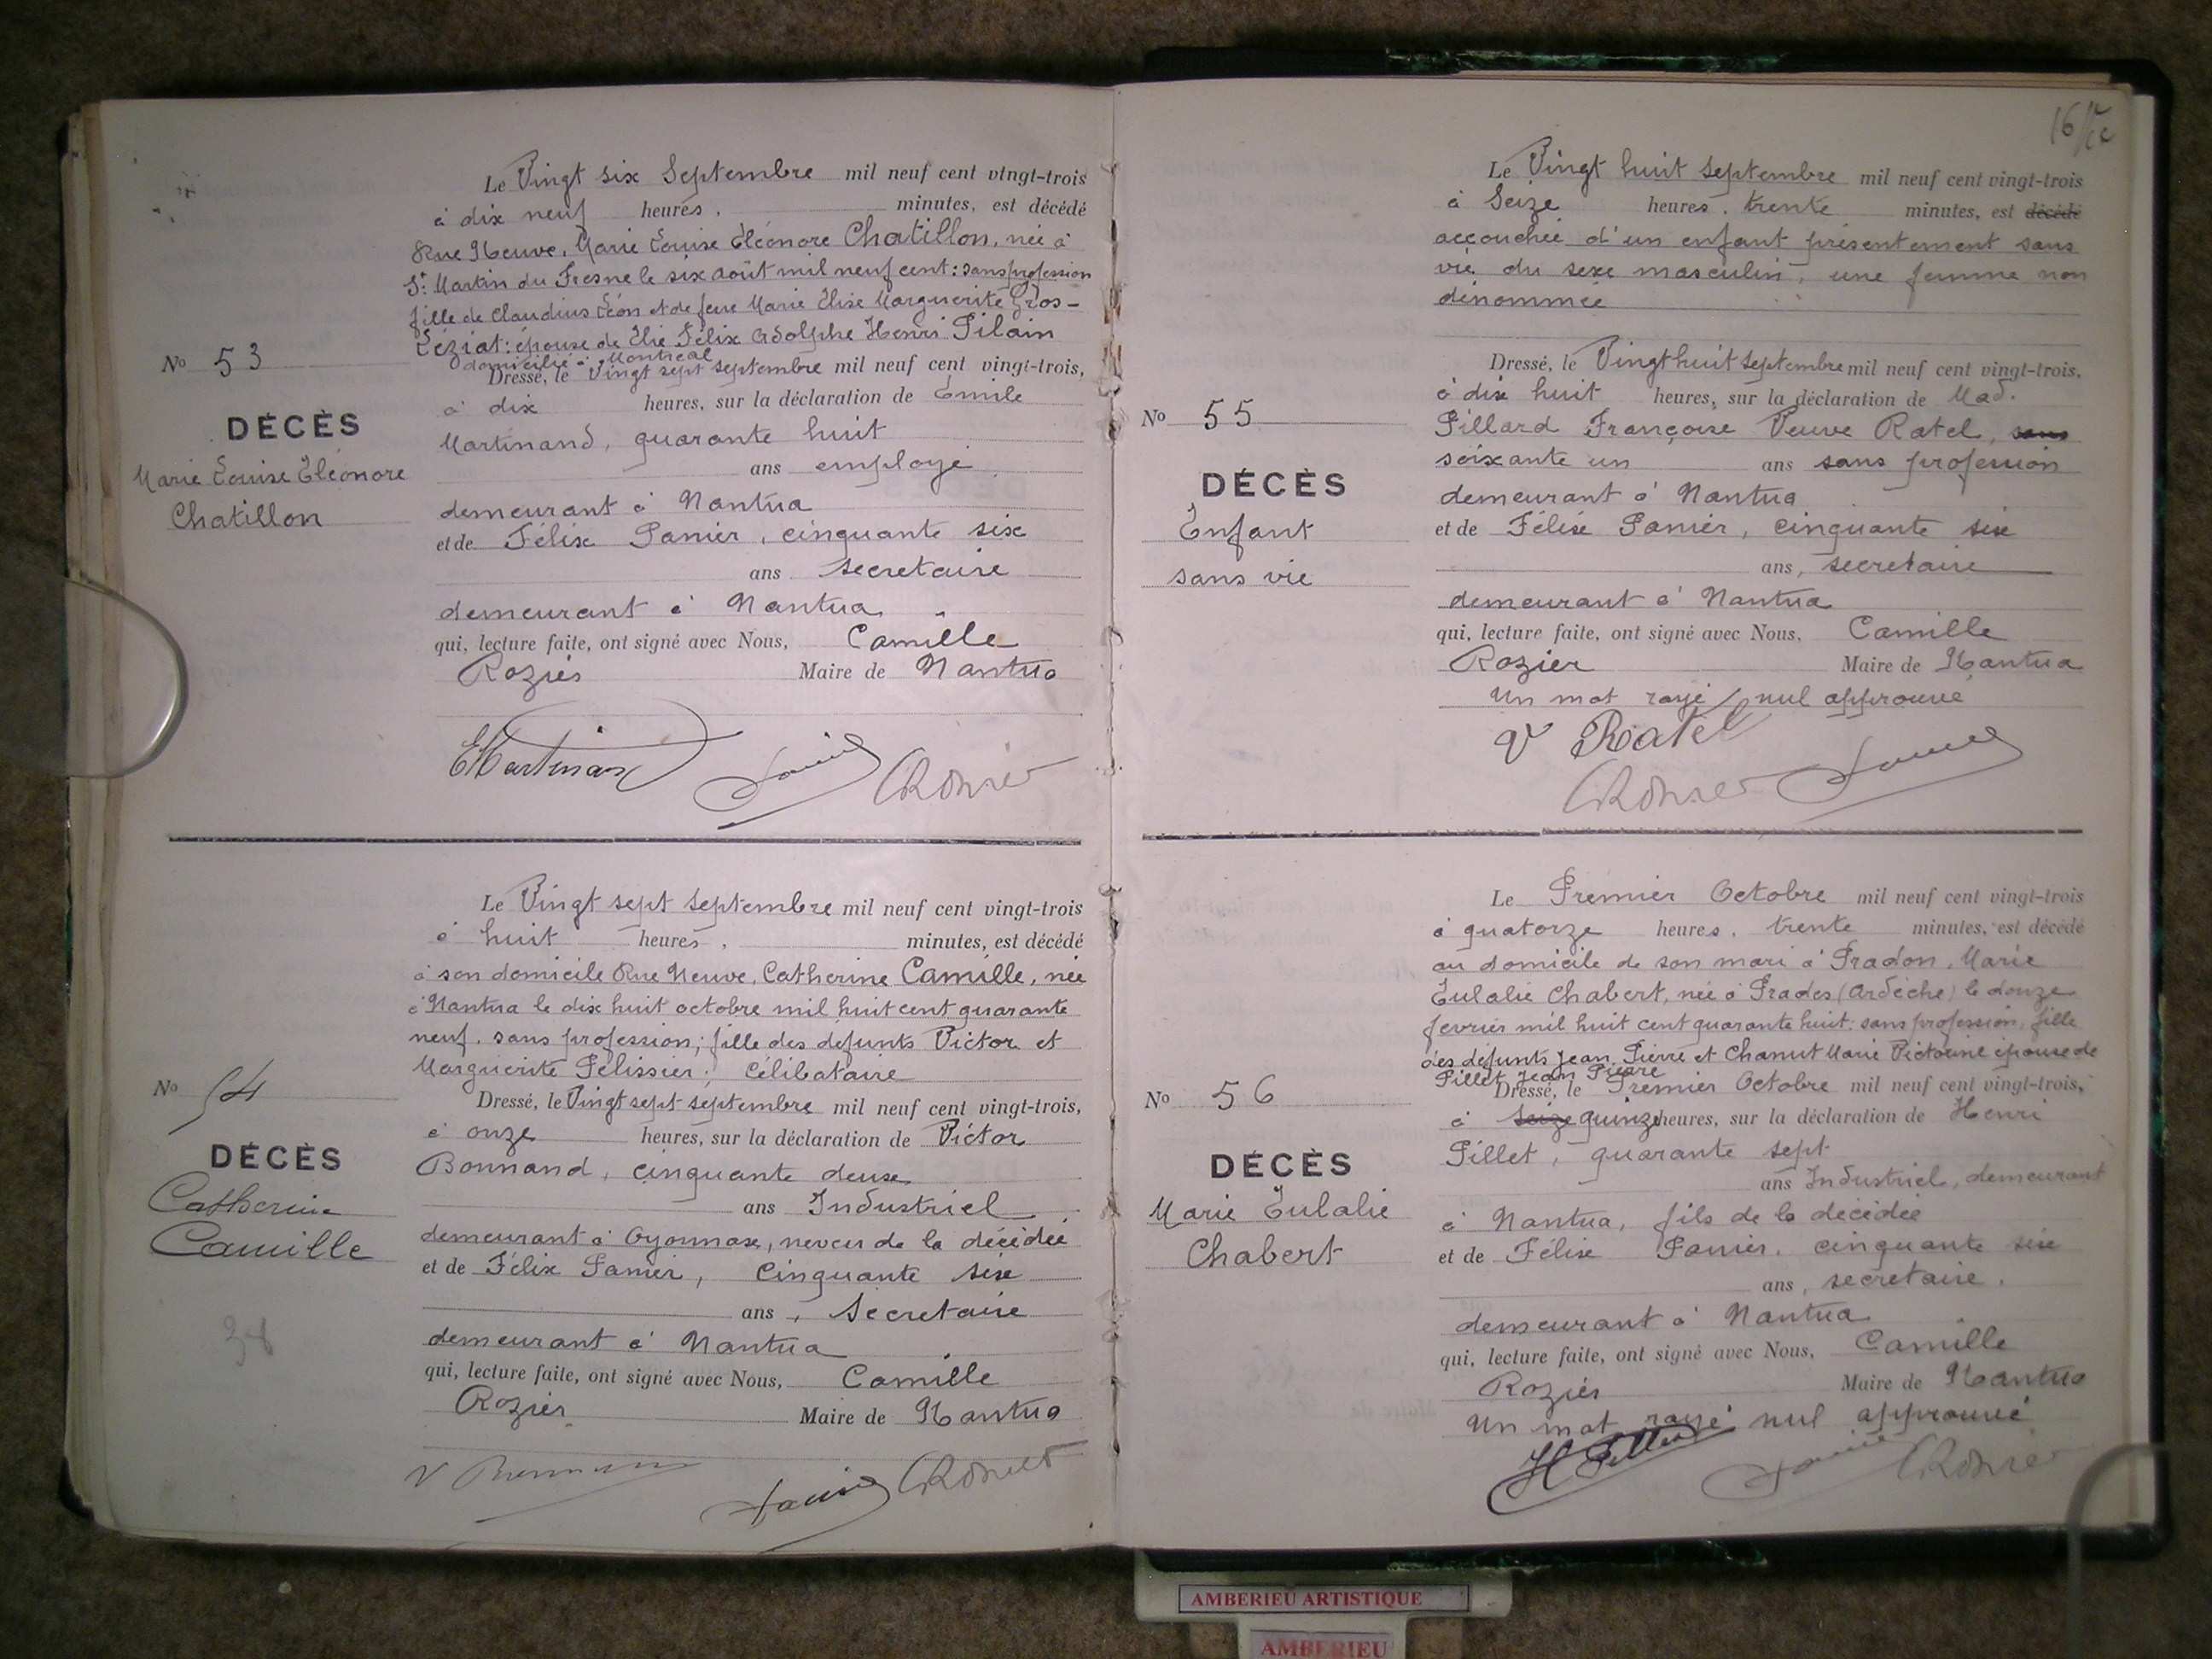 Le Vingt six Septembre mil neuf cent vingt-trois
à dix neuf heures, minutes, est décédé
Rue Neuve, Marie Louise Eléonore Chatillon, née à
St Martin du Fresne le six août mil neuf cent : sans profession
fille de Claudius Léon et de feue Marie Elise Marguerite Gros-
Léziat : épouse de Elie Félix Adolphe Henri Pilain
domicilié à Montréal
No 53
Dressé, le Vingt sept septembre mil neuf cent vingt-trois,
à dix heures, sur la déclaration de Emile
DÉCÈS
Martinand, quarante huit
Marie Louise Eléonore
Chatillon
ans employé
demeurant à Nantua
et de Félix Panier, cinquante six
ans secretaire
demeurant à Nantua
qui, lecture faite, ont signé avec Nous, Camille
Rozier Maire de Nantua
EMartinand Panier CRozier
Le Vingt sept septembre mil neuf cent vingt-trois
à huit heures, minutes, est décédé
à son domicile Rue Neuve, Catherine Camille, née
à Nantua le dix huit octobre mil huit cent quarante
neuf. sans profession; fille des défunts Victor et
Marguerite Pélissier; célibataire
No 54
Dressé, le Vingt sept septembre mil neuf cent vingt-trois,
à onze heures, sur la déclaration de Victor
DÉCÈS
Bonnand, cinquante deux
Catherine
Camille
ans Industriel
demeurant à Oyonnax, neveu de la décédée
et de Félix Panier, cinquante six
ans, Secretaire
38
demeurant à Nantua
qui, lecture faite, ont signé avec Nous, Camille
Rozier Maire de Nantua
V Bonnand Panier CRozier
16
Le Vingt huit septembre mil neuf cent vingt-trois
à Seize heures, trente minutes, est décédé
accouchée d'un enfant présentement sans
vie du sexe masculin, une femme non
dénommée
Dressé, le Vingt huit septembre mil neuf cent vingt-trois,
à dix huit heures, sur la déclaration de Mad.
No 55
Pillard Françoise Veuve Ratel, sans
soixante un ans sans profession
DÉCÈS
Enfant
sans vie
demeurant à Nantua
et de Félix Panier, cinquante six
ans, secretaire
demeurant à Nantua
qui, lecture faite, ont signé avec Nous, Camille
Rozier Maire de Nantua
Un mot rayé nul approuvé
V Ratel
CRozier Panier
Le Premier Octobre mil neuf cent vingt-trois
à quatorze heures, trente minutes, est décédé
au domicile de son mari à Pradon, Marie
Eulalie Chabert, née à Prades (Ardèche) le douze
fevrier mil huit cent quarante huit : sans profession, fille
des défunts Jean Pierre et Chanut Marie Victorine épouse de
Pillet Jean Pierre
No 56
Dressé, le Premier Octobre mil neuf cent vingt-trois,
à seize quinze heures, sur la déclaration de Henri
Pillet, quarante sept
DÉCÈS
Marie Eulalie
Chabert
ans Industriel, demeurant
à Nantua, fils de la décédée
et de Félix Panier, cinquante six
ans, secretaire,
demeurant à Nantua
qui, lecture faite, ont signé avec Nous, Camille
Rozier Maire de Nantua
Un mot rayé nul approuvé
H Pillet Panier CRozier
AMBERIEU ARTISTIQUE
AMBERIEU